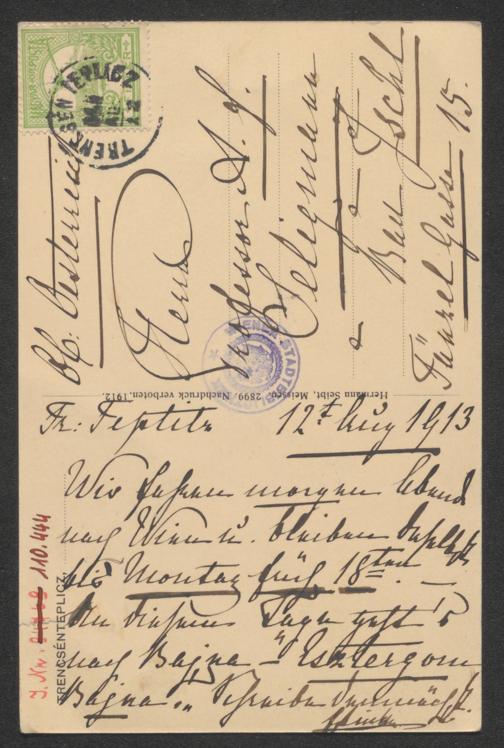 Ob. Oesterreich
Herrn
Professor A. F.
Seligmann
in
Bad Ischl
Fänzel Gasse 15.
TRENCSÉN TEPLICZ
MAGYAR KIR. POSTA
WIENER STADTBIBLIOTHEK
Hermann Seibt, Meissen. 2899. Nachdruck verboten. 1912.
TRENCSÉNTEPLICZ.
110.444
Tr: Teplitz 12t Aug 1913
Wir fahren morgen Abend
nach Wien u. bleiben daselbst
bis Montag früh 18ten. —
An diesem Tage geht's
nach Bajna - "Esztergom
Bajna". Schreibe demnächst.